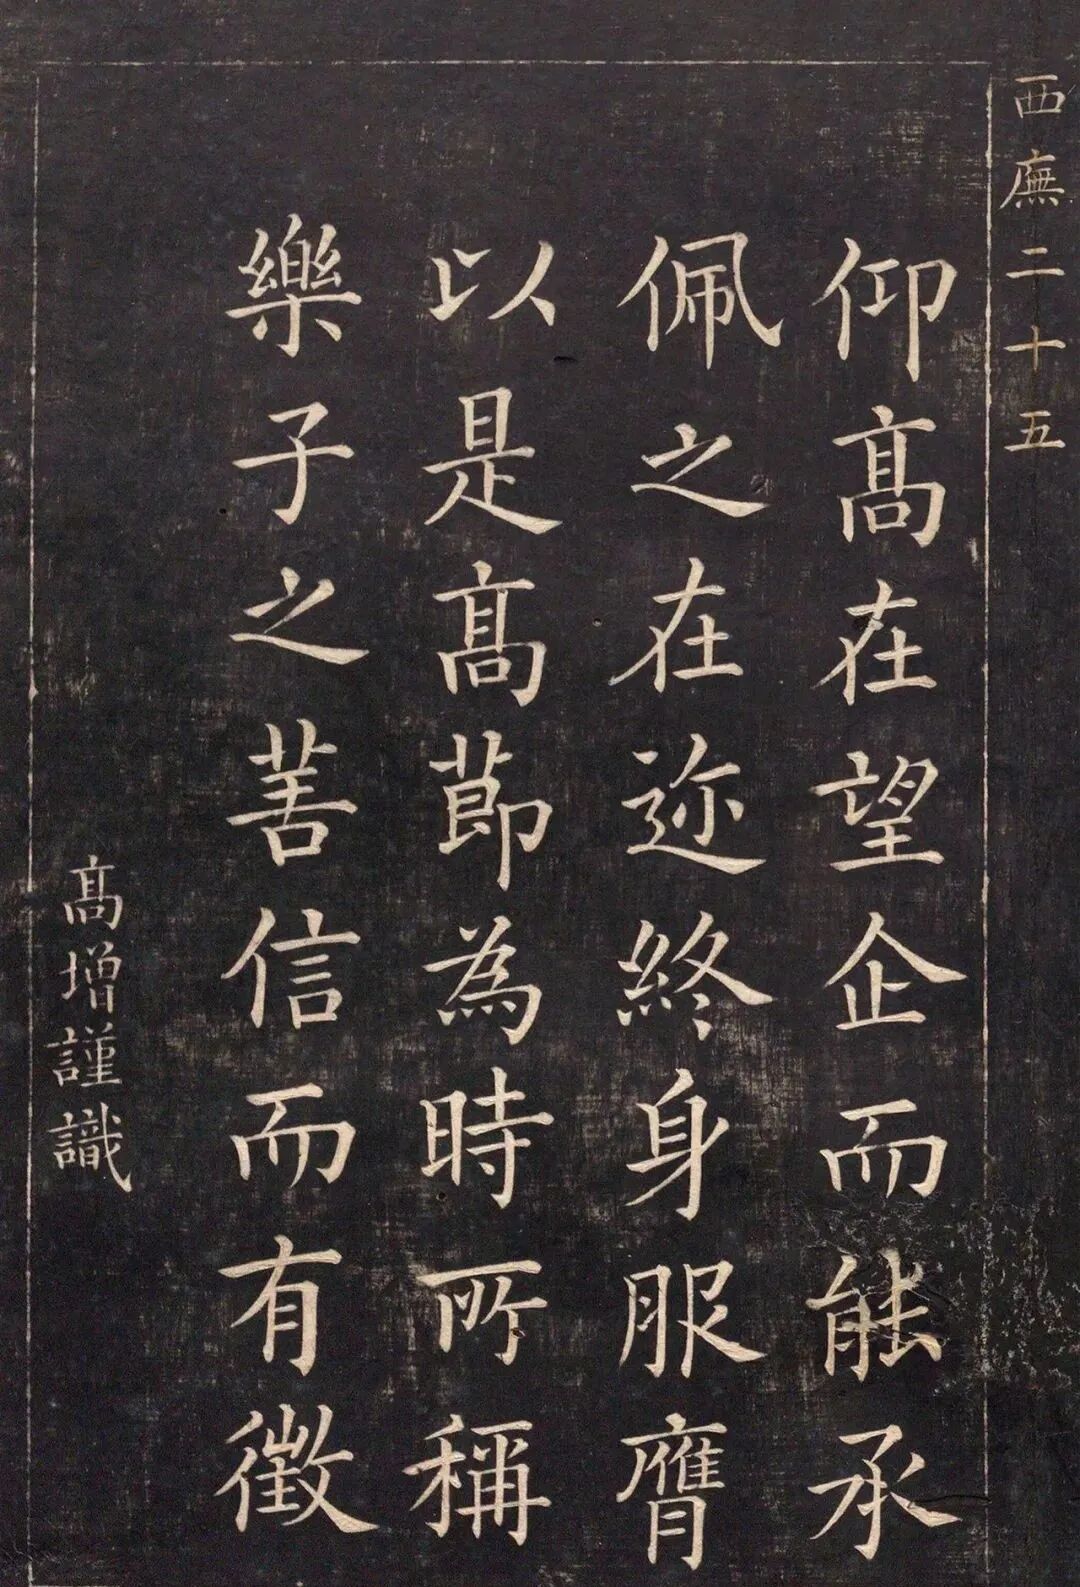 西廡二十五
仰髙在望企而能承
佩之在迩終身服膺
以是髙莭為時所稱
樂子之善信而有徵
髙增謹識